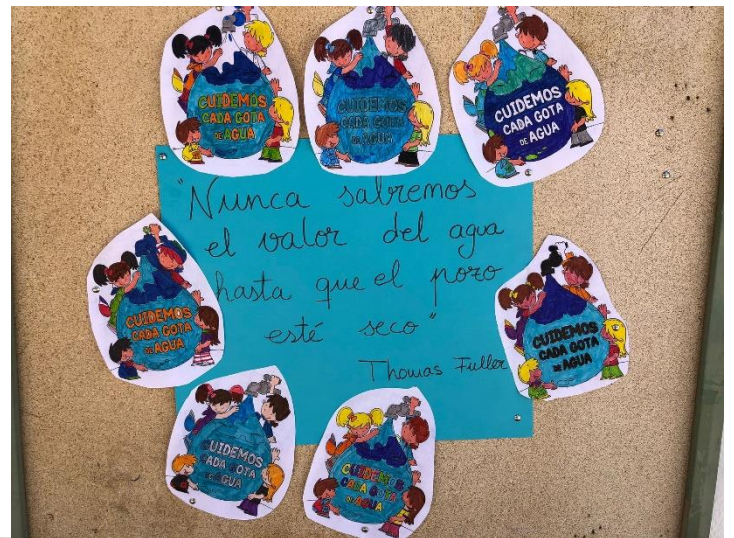 CUIDEMOS
CADA GOTA
DE AGUA
CUIDEMOS
CADA GOTA
DE AGUA
CUIDEMOS
CADA GOTA
DE AGUA
"Nunca sabremos
el valor del agua
hasta que el pozo
esté seco"
Thomas Fuller
CUIDEMOS
CADA GOTA
DE AGUA
CUIDEMOS
CADA GOTA
DE AGUA
CUIDEMOS
CADA GOTA
DE AGUA
CUIDEMOS
CADA GOTA
DE AGUA